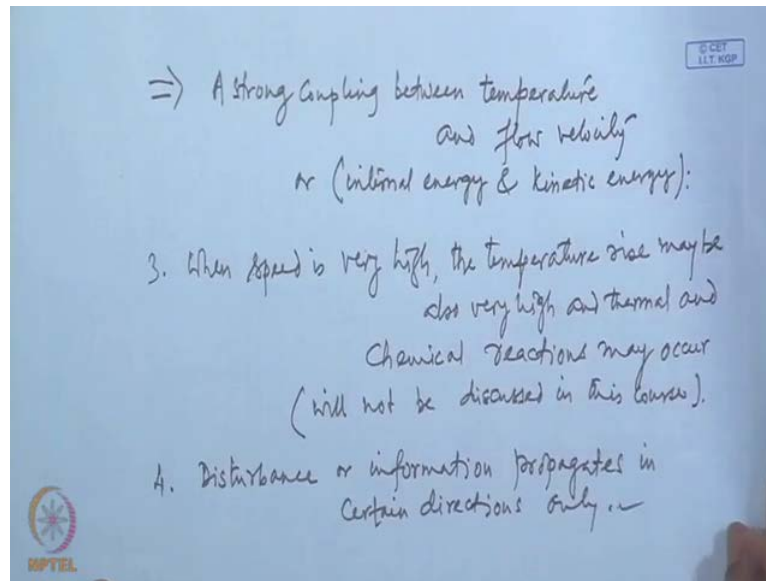 © CET
I.I.T. KGP
⇒ A strong coupling between temperature
and flow velocity
or (internal energy & kinetic energy):
3. When speed is very high, the temperature rise may be
also very high and thermal and
Chemical reactions may occur
(will not be discussed in this course).
4. Disturbance or information propagates in
certain directions only.
NPTEL